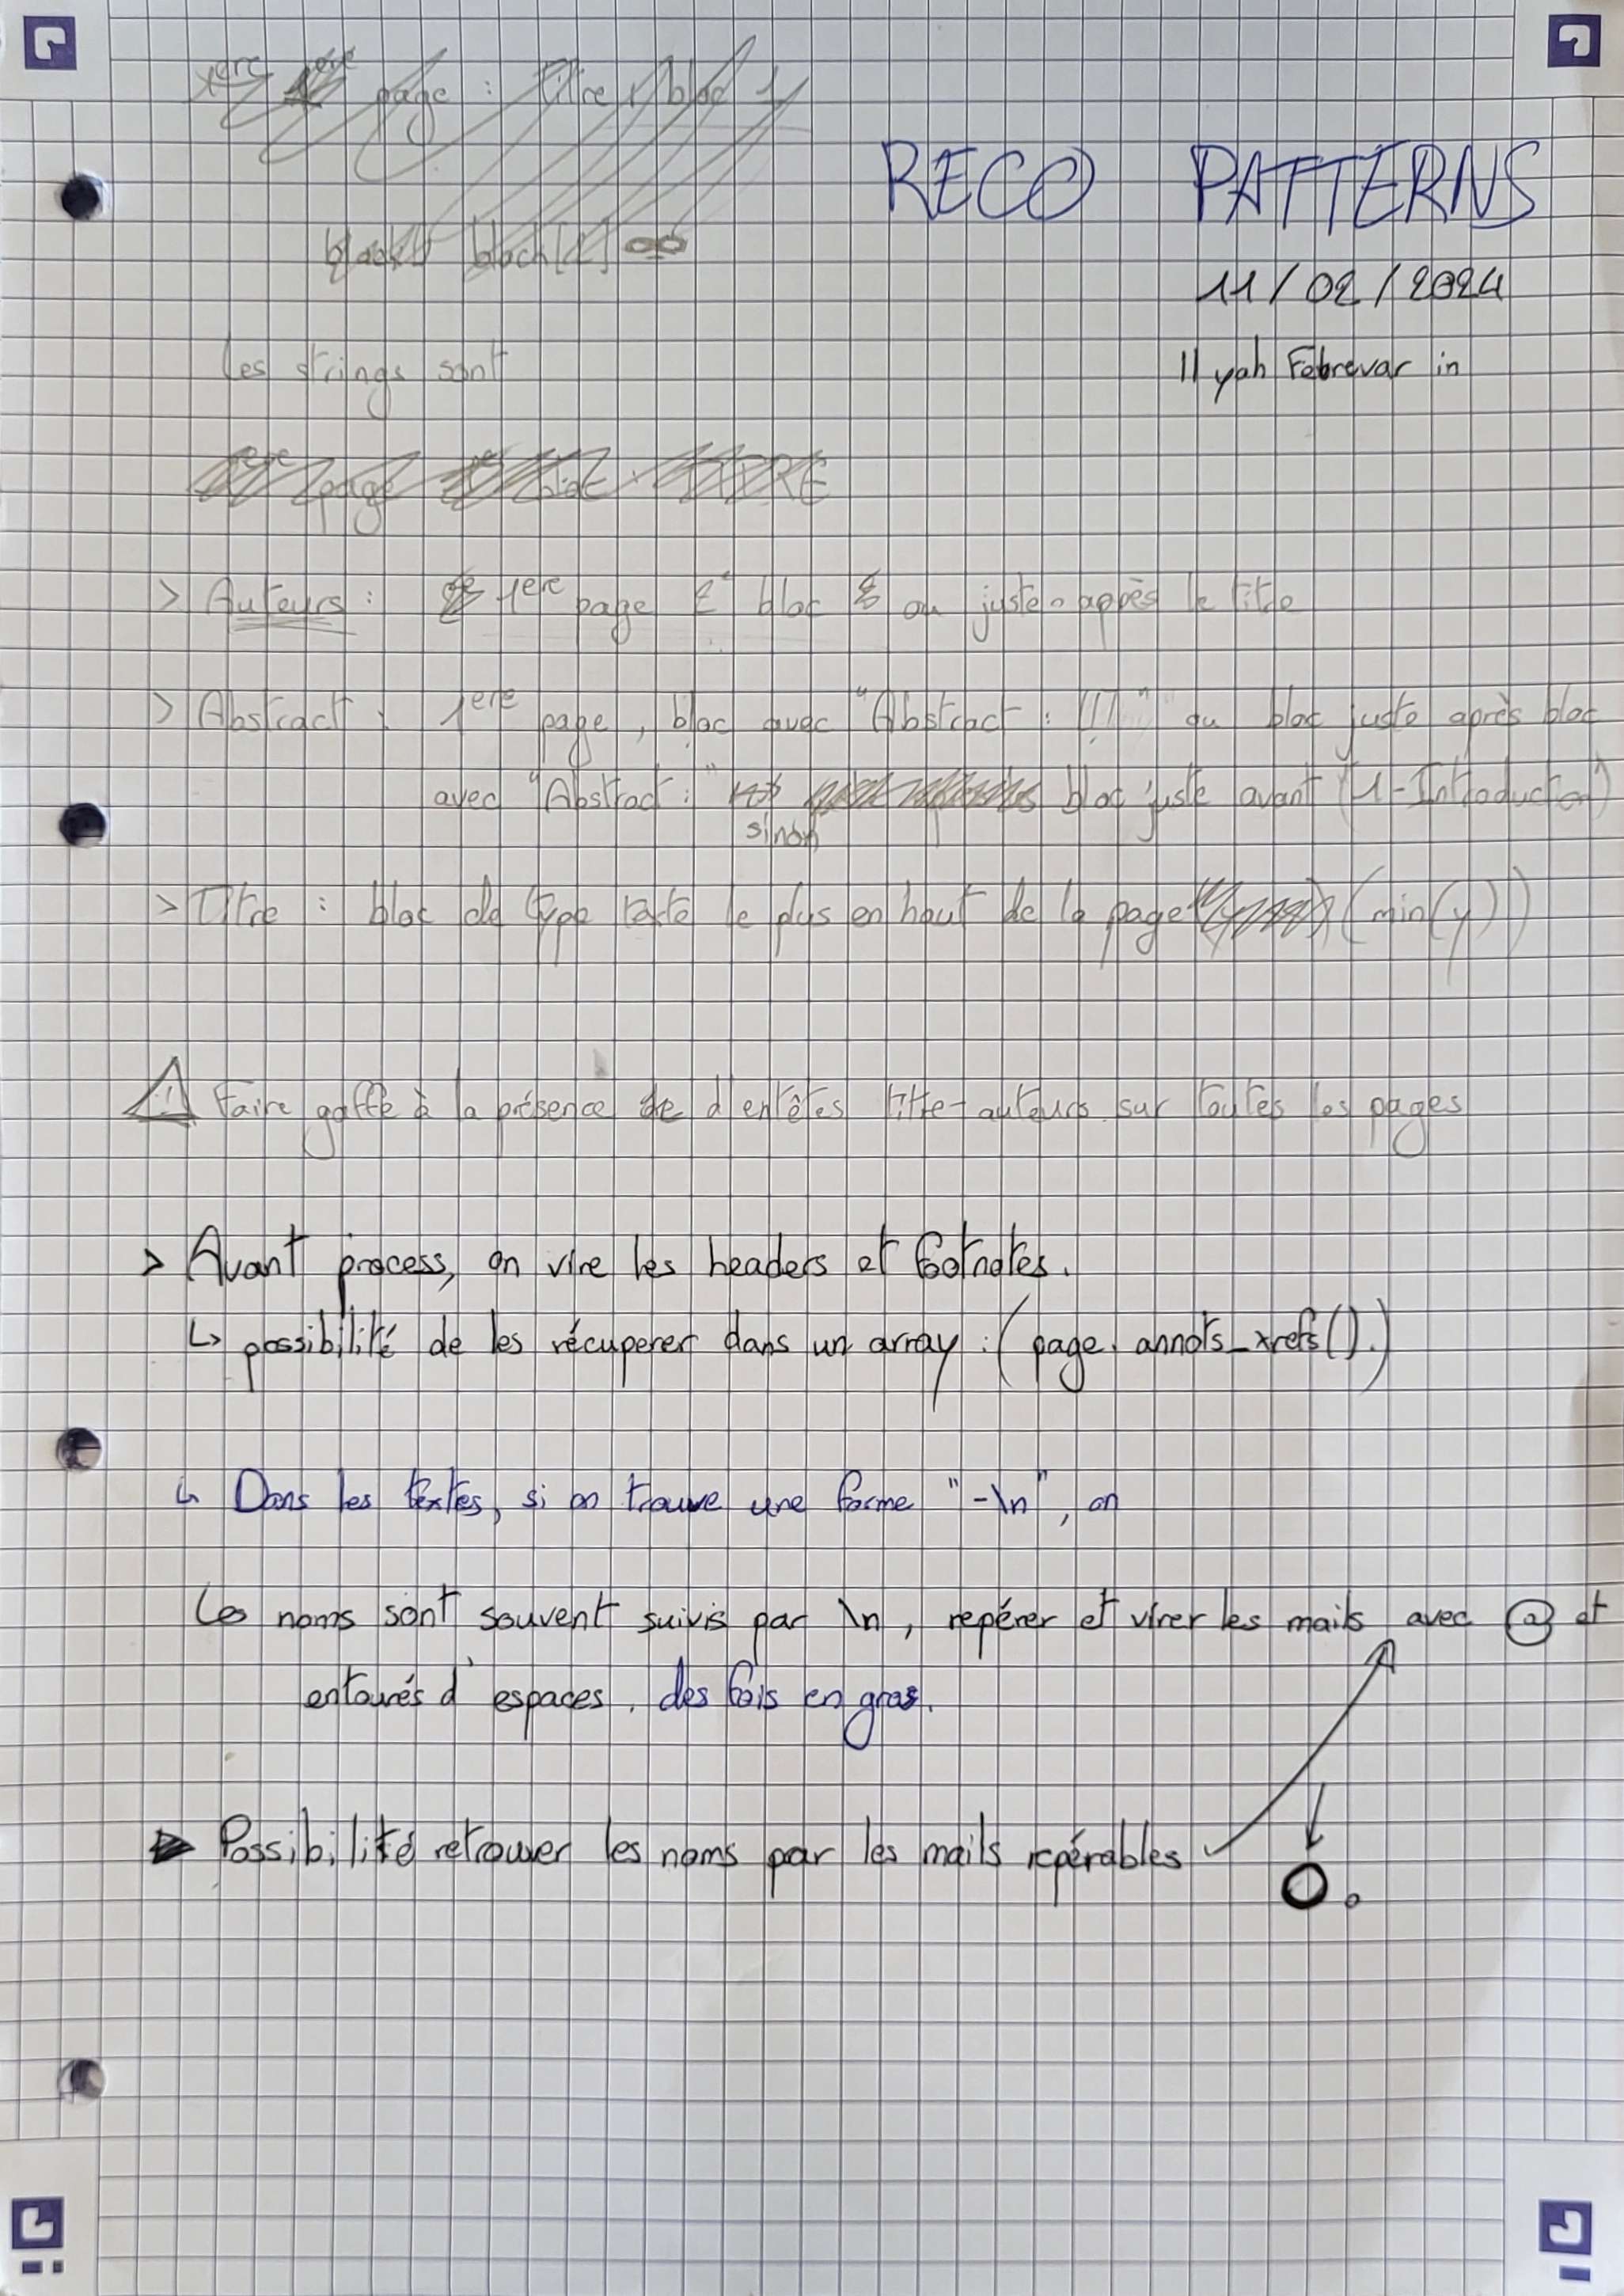 1ere page : titre bloc 1
RECO PATTERNS
block[1]
11/02/2024
les strings sont
11 yah Febrevar in
page bloc : TITRE
> Auteurs : 1ere page 2e bloc ou juste après le titre
> Abstract : 1ere page, bloc avec "Abstract : !!!" ou bloc juste après bloc
avec "Abstract :" bloc juste avant (1-Introduction)
sinon
> Titre : bloc de type texte le plus en haut de la page (min(y))
⚠ Faire gaffe à la présence de d'entêtes titre-auteurs sur toutes les pages
> Avant process, on vire les headers et footnotes.
↳ possibilité de les récuperer dans un array : (page.annots_xrefs().)
↳ Dans les textes, si on trouve une forme "-\n", on
Les noms sont souvent suivis par \n, repérer et virer les mails avec @ et
entourés d'espaces. des fois en gras.
► Possibilité retrouver les noms par les mails repérables